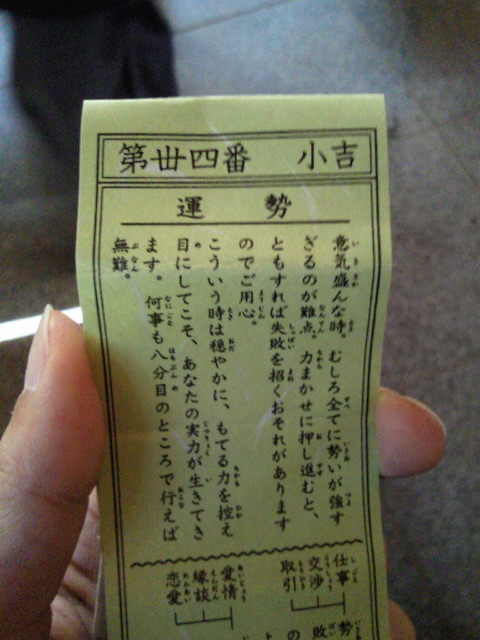 第丗四番 小吉
運勢
意気盛んな時。むしろ全てに勢いが強す
ぎるのが難点。力まかせに押し進むと、
ともすれば失敗を招くおそれがあります
のでご用心。
こういう時は穏やかに、もてる力を控え
目にしてこそ、あなたの実力が生きてき
ます。何事も八分目のところで行えば
無難。
仕事
交渉
取引
愛情
縁談
恋愛